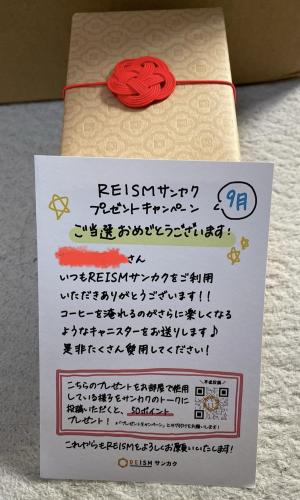 REISMサンカク
プレゼントキャンペーン 9月
ご当選おめでとうございます!
さん
いつもREISMサンカクをご利用
いただきありがとうございます!!
コーヒーを淹れるのがさらに楽しくなる
ようなキャニスターをお送りします♪
是非たくさん費用してください!
こちらのプレゼントをお部屋で使用
している様子をサンカクのトークに
投稿いただくと、50ポイント
プレゼント!
これからもREISMをよろしくお願いいたします!
REISM サンカク